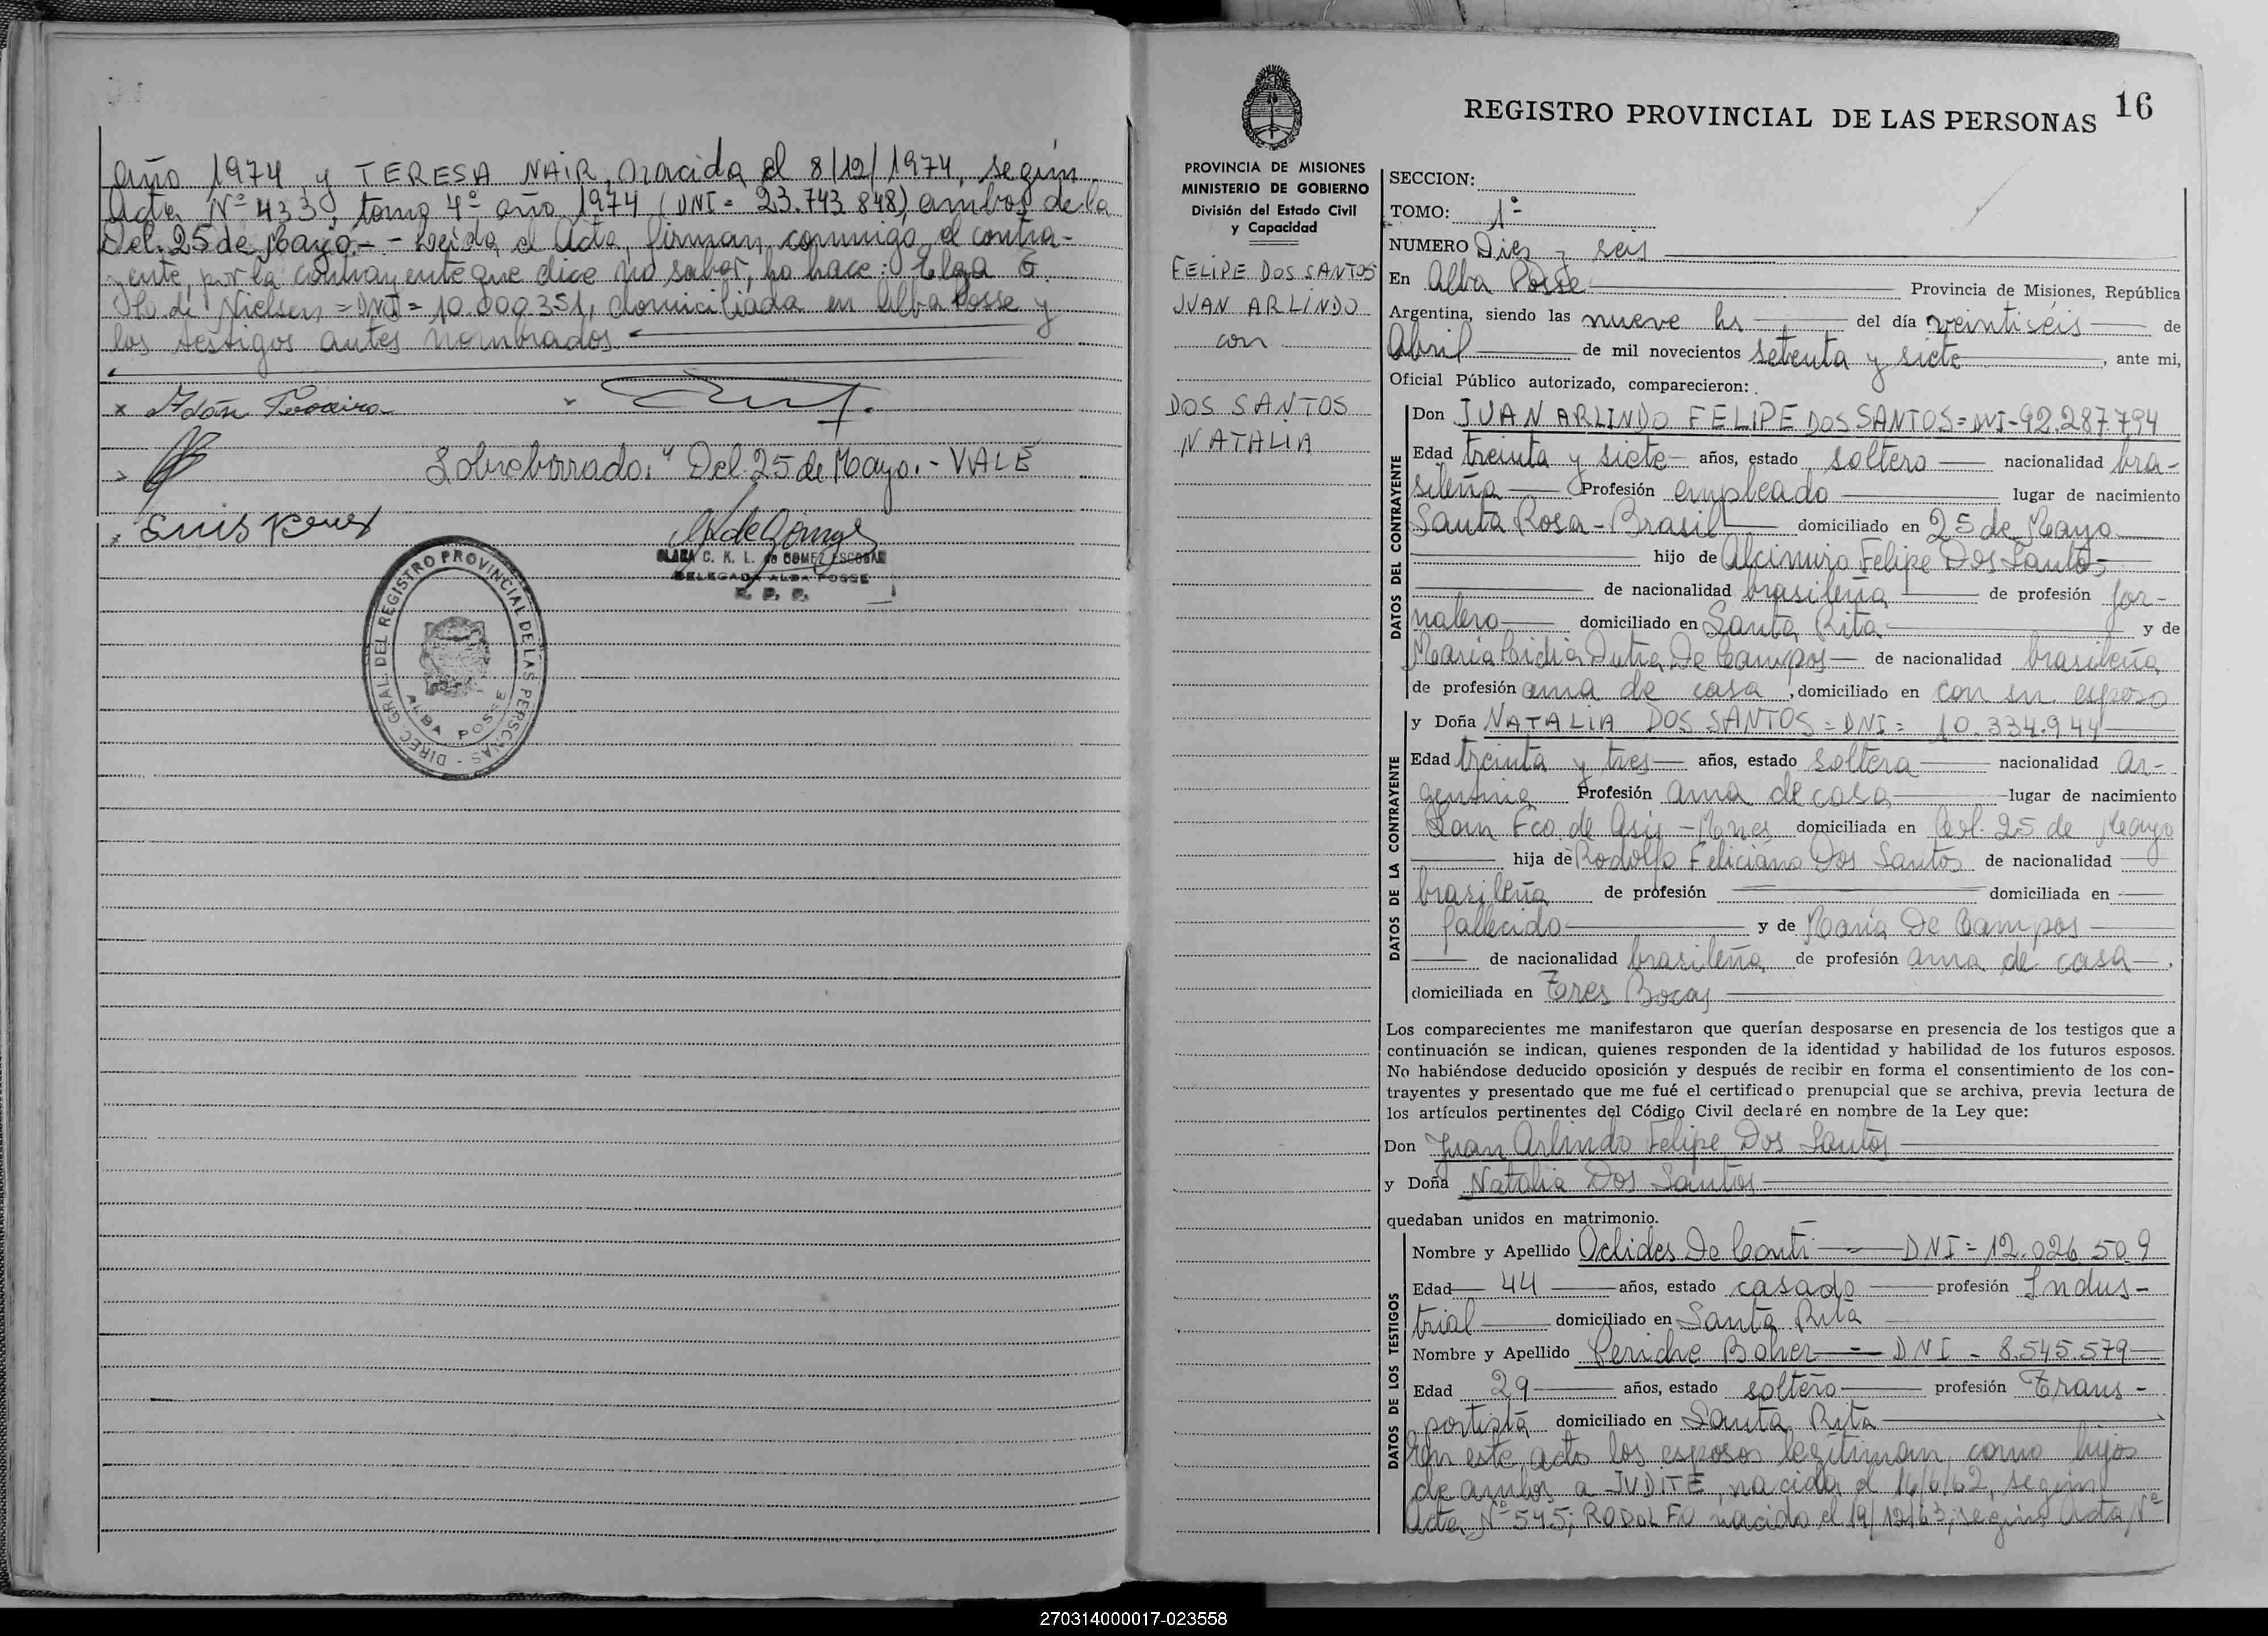 año 1974 y TERESA NAIR, nacida el 8/12/1974, según
Acta Nº 433, tomo 4º año 1974 (DNI= 23.743.848) ambos de la
Del. 25 de Mayo.- - Leida el Acta, firman conmigo el contra-
yente, por la contrayente que dice no saber, lo hace: Elga E.
de Nielsen = DNI = 10.000351, domiciliada en Alba Posse y
los testigos antes nombrados.
x Adán
Sobreborrado: "Del. 25 de Mayo.- VALE
x Luis
CLARA C. K. L. de GOMEZ ESCOBAR
DELEGADA ALBA POSSE
R. P. P.
DIREC. GRAL. DEL REGISTRO PROVINCIAL DE LAS PERSONAS
ALBA POSSE
REGISTRO PROVINCIAL DE LAS PERSONAS 16
PROVINCIA DE MISIONES
MINISTERIO DE GOBIERNO
División del Estado Civil
y Capacidad
FELIPE DOS SANTOS
JUAN ARLINDO
con
DOS SANTOS
NATALIA
SECCION:
TOMO: 1º
NUMERO Diez y seis
En Alba Posse Provincia de Misiones, República
Argentina, siendo las nueve hs del día veintiseis de
Abril de mil novecientos setenta y siete, ante mi,
Oficial Público autorizado, comparecieron:
DATOS DEL CONTRAYENTE
Don JUAN ARLINDO FELIPE DOS SANTOS = DNI-92.287.794
Edad treinta y siete años, estado soltero nacionalidad bra-
sileña Profesión empleado lugar de nacimiento
Santa Rosa - Brasil domiciliado en 25 de Mayo
hijo de Alcimiro Felipe Dos Santos
de nacionalidad brasileña de profesión jor-
nalero domiciliado en Santa Rita y de
María Dutra De Campos de nacionalidad brasileña
de profesión ama de casa, domiciliado en con su esposo
DATOS DE LA CONTRAYENTE
y Doña NATALIA DOS SANTOS = DNI = 10.334.944
Edad treinta y tres años, estado soltera nacionalidad ar-
gentina Profesión ama de casa lugar de nacimiento
San Fco. de Asis - Mnes domiciliada en Col. 25 de Mayo
hija de Rodolfo Feliciano Dos Santos de nacionalidad
brasileña de profesión domiciliada en
fallecido y de María De Campos
de nacionalidad brasileña de profesión ama de casa,
domiciliada en Tres Bocas
Los comparecientes me manifestaron que querían desposarse en presencia de los testigos que a
continuación se indican, quienes responden de la identidad y habilidad de los futuros esposos.
No habiéndose deducido oposición y después de recibir en forma el consentimiento de los con-
trayentes y presentado que me fué el certificado prenupcial que se archiva, previa lectura de
los artículos pertinentes del Código Civil declaré en nombre de la Ley que:
Don Juan Arlindo Felipe Dos Santos
y Doña Natalia Dos Santos
quedaban unidos en matrimonio.
DATOS DE LOS TESTIGOS
Nombre y Apellido Oclides De Conti DNI = 12.026.509
Edad 44 años, estado casado profesión Indus-
trial domiciliado en Santa Rita
Nombre y Apellido Periche Boher - DNI - 8.545.579
Edad 29 años, estado soltero profesión Trans-
portista domiciliado en Santa Rita
En este acto los esposos legitiman como hijos
de ambos a JUDITE, nacida el 16/6/62, según
Acta Nº 545; RODOLFO nacido el 19/12/63, según Acta Nº
270314000017-023558